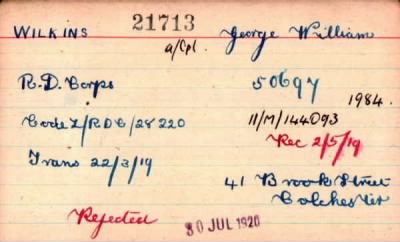 WILKINS 21713 George William
a/Cpl.
R.D. Corps 50697
1984.
Code Z/RDC/28220 11/M/144093
Rec 2/5/19
Trans 22/3/19
41 Brook Street
Colchester
Rejected
30 JUL 1920